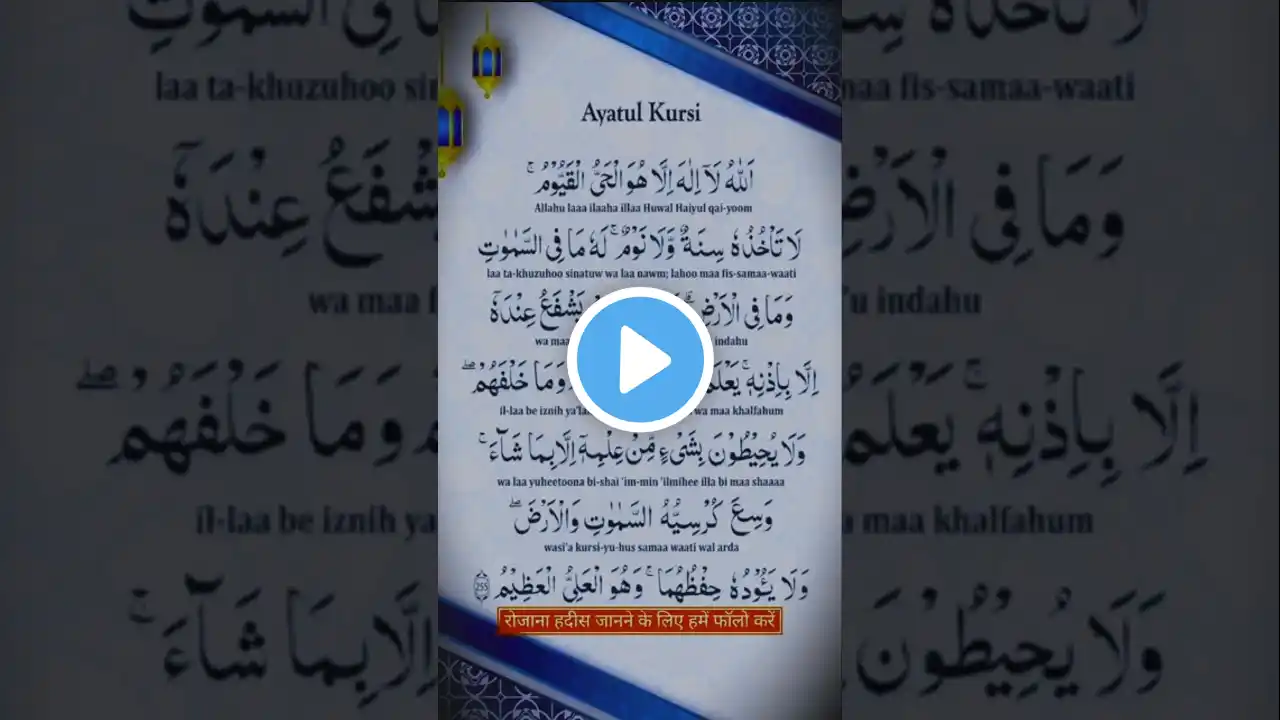 Ayatul Kursi
اَللّٰهُ لَآ اِلٰهَ اِلَّا هُوَ الْحَىُّ الْقَيُّوْمُ ۚ
Allahu laaa ilaaha illaa Huwal Haiyul qai-yoom
لَا تَاْخُذُهٗ سِنَةٌ وَّلَا نَوْمٌ ۚ لَهٗ مَا فِى السَّمٰوٰتِ
laa ta-khuzuhoo sinatuw wa laa nawm; lahoo maa fis-samaa-waati
وَمَا فِى الْاَرْضِ يَشْفَعُ عِنْدَهٗ
wa maa indahu
اِلَّا بِاِذْنِهٖ ۚ يَعْلَمُ وَمَا خَلْفَهُمْ ۖ
il-laa be iznih wa maa khalfahum
وَلَا يُحِيْطُوْنَ بِشَىْءٍ مِّنْ عِلْمِهٖٓ اِلَّا بِمَا شَآءَ ۚ
wa laa yuheetoona bi-shai 'im-min 'ilmihee illa bi maa shaaaa
وَسِعَ كُرْسِيُّهُ السَّمٰوٰتِ وَالْاَرْضَ ۖ
wasi'a kursi-yu-hus samaa waati wal arda
وَلَا يَـُٔوْدُهٗ حِفْظُهُمَا ۚ وَهُوَ الْعَلِىُّ الْعَظِيْمُ 255
रोजाना हदीस जानने के लिए हमें फॉलो करें